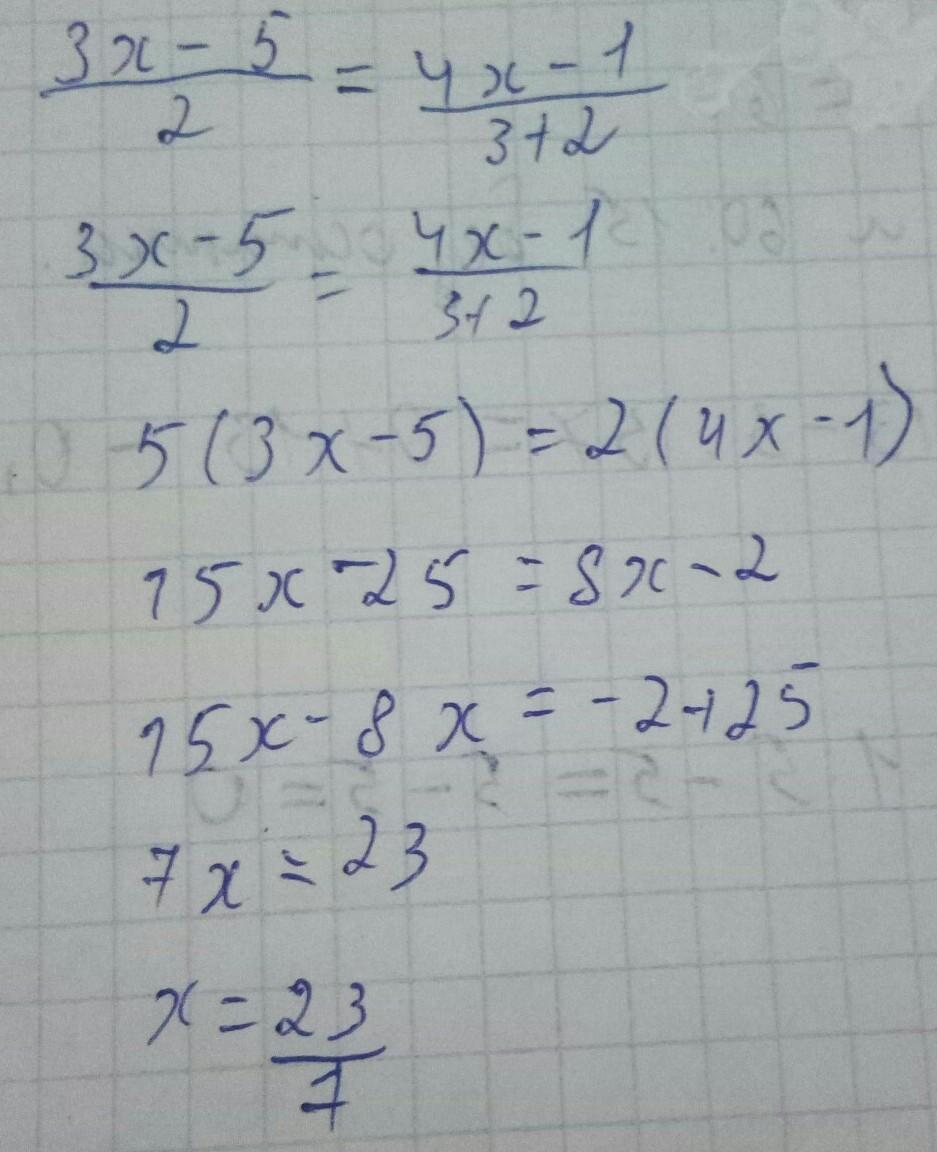 (3x - 5)/2 = (4x - 1)/(3+2)
(3x - 5)/2 = (4x - 1)/(3+2)
5(3x - 5) = 2(4x - 1)
15x - 25 = 8x - 2
15x - 8x = -2+25
7x = 23
x = 23/7